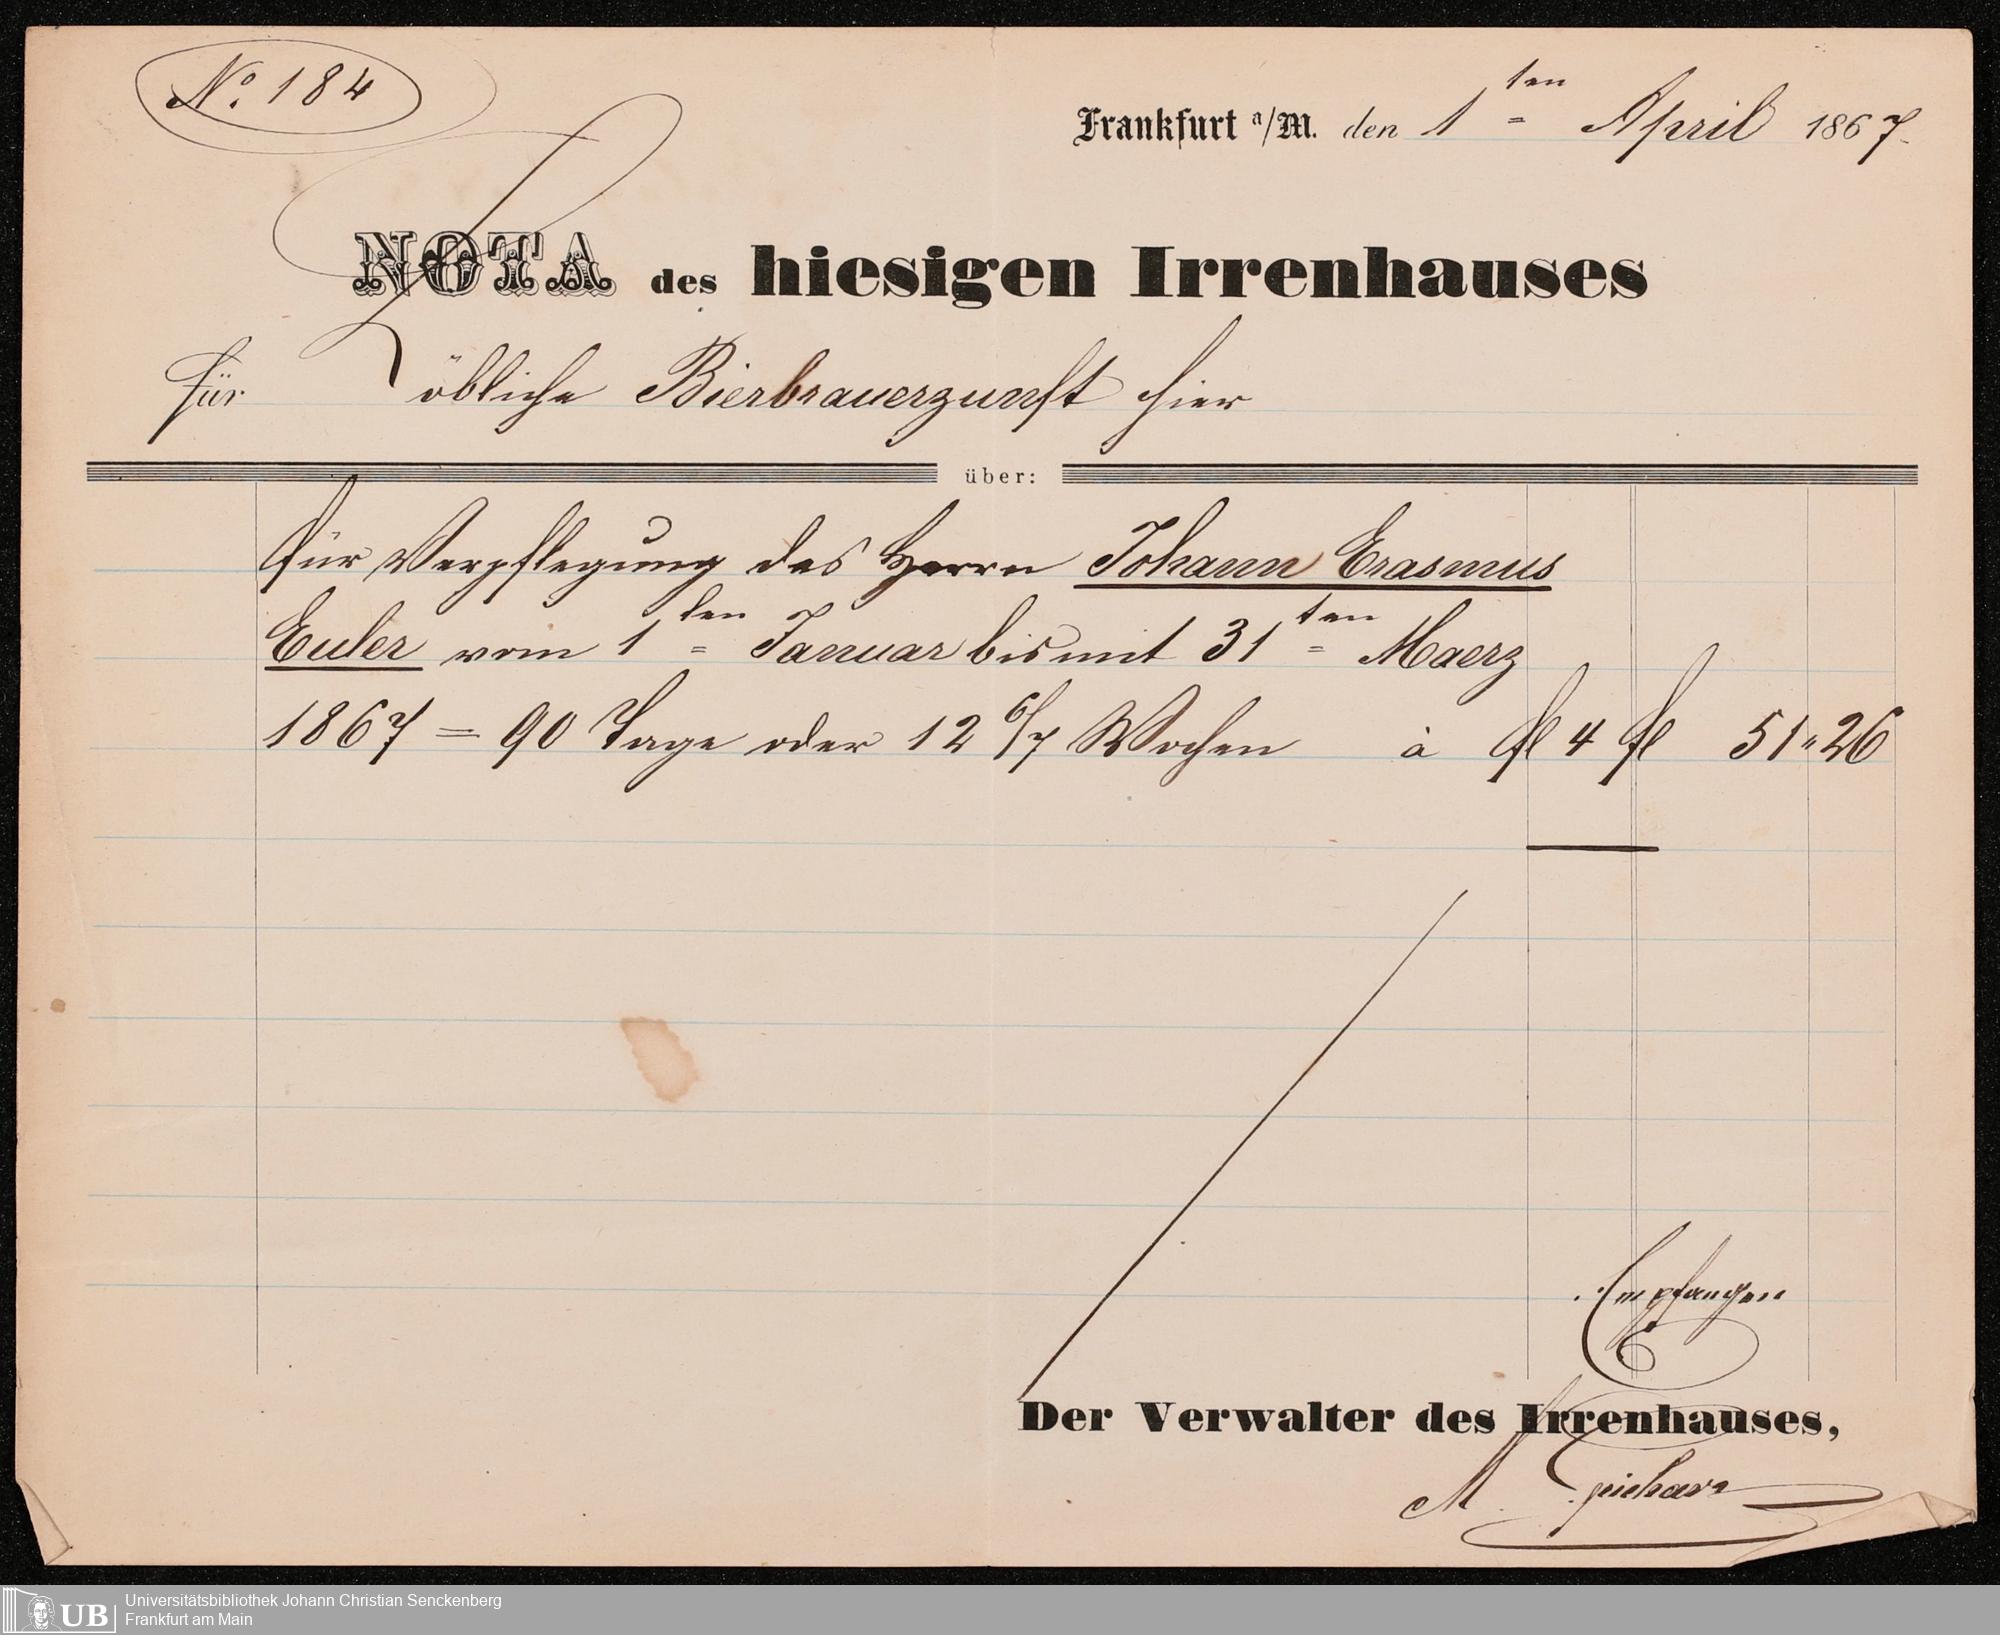 No. 184
Frankfurt a/M. den 1ten April 1867.
NOTA des hiesigen Irrenhauses
Für Löbliche Bierbrauerzunft hier
über:
Für Verpflegung des Herrn Johann Erasmus
Euler vom 1ten Januar bis mit 31ten Maerz
1867 = 90 Tage oder 12 6/7 Wochen à fl 4 fl 51 " 26
Empfangen
Der Verwalter des Irrenhauses,
M.
UB
Universitätsbibliothek Johann Christian Senckenberg
Frankfurt am Main